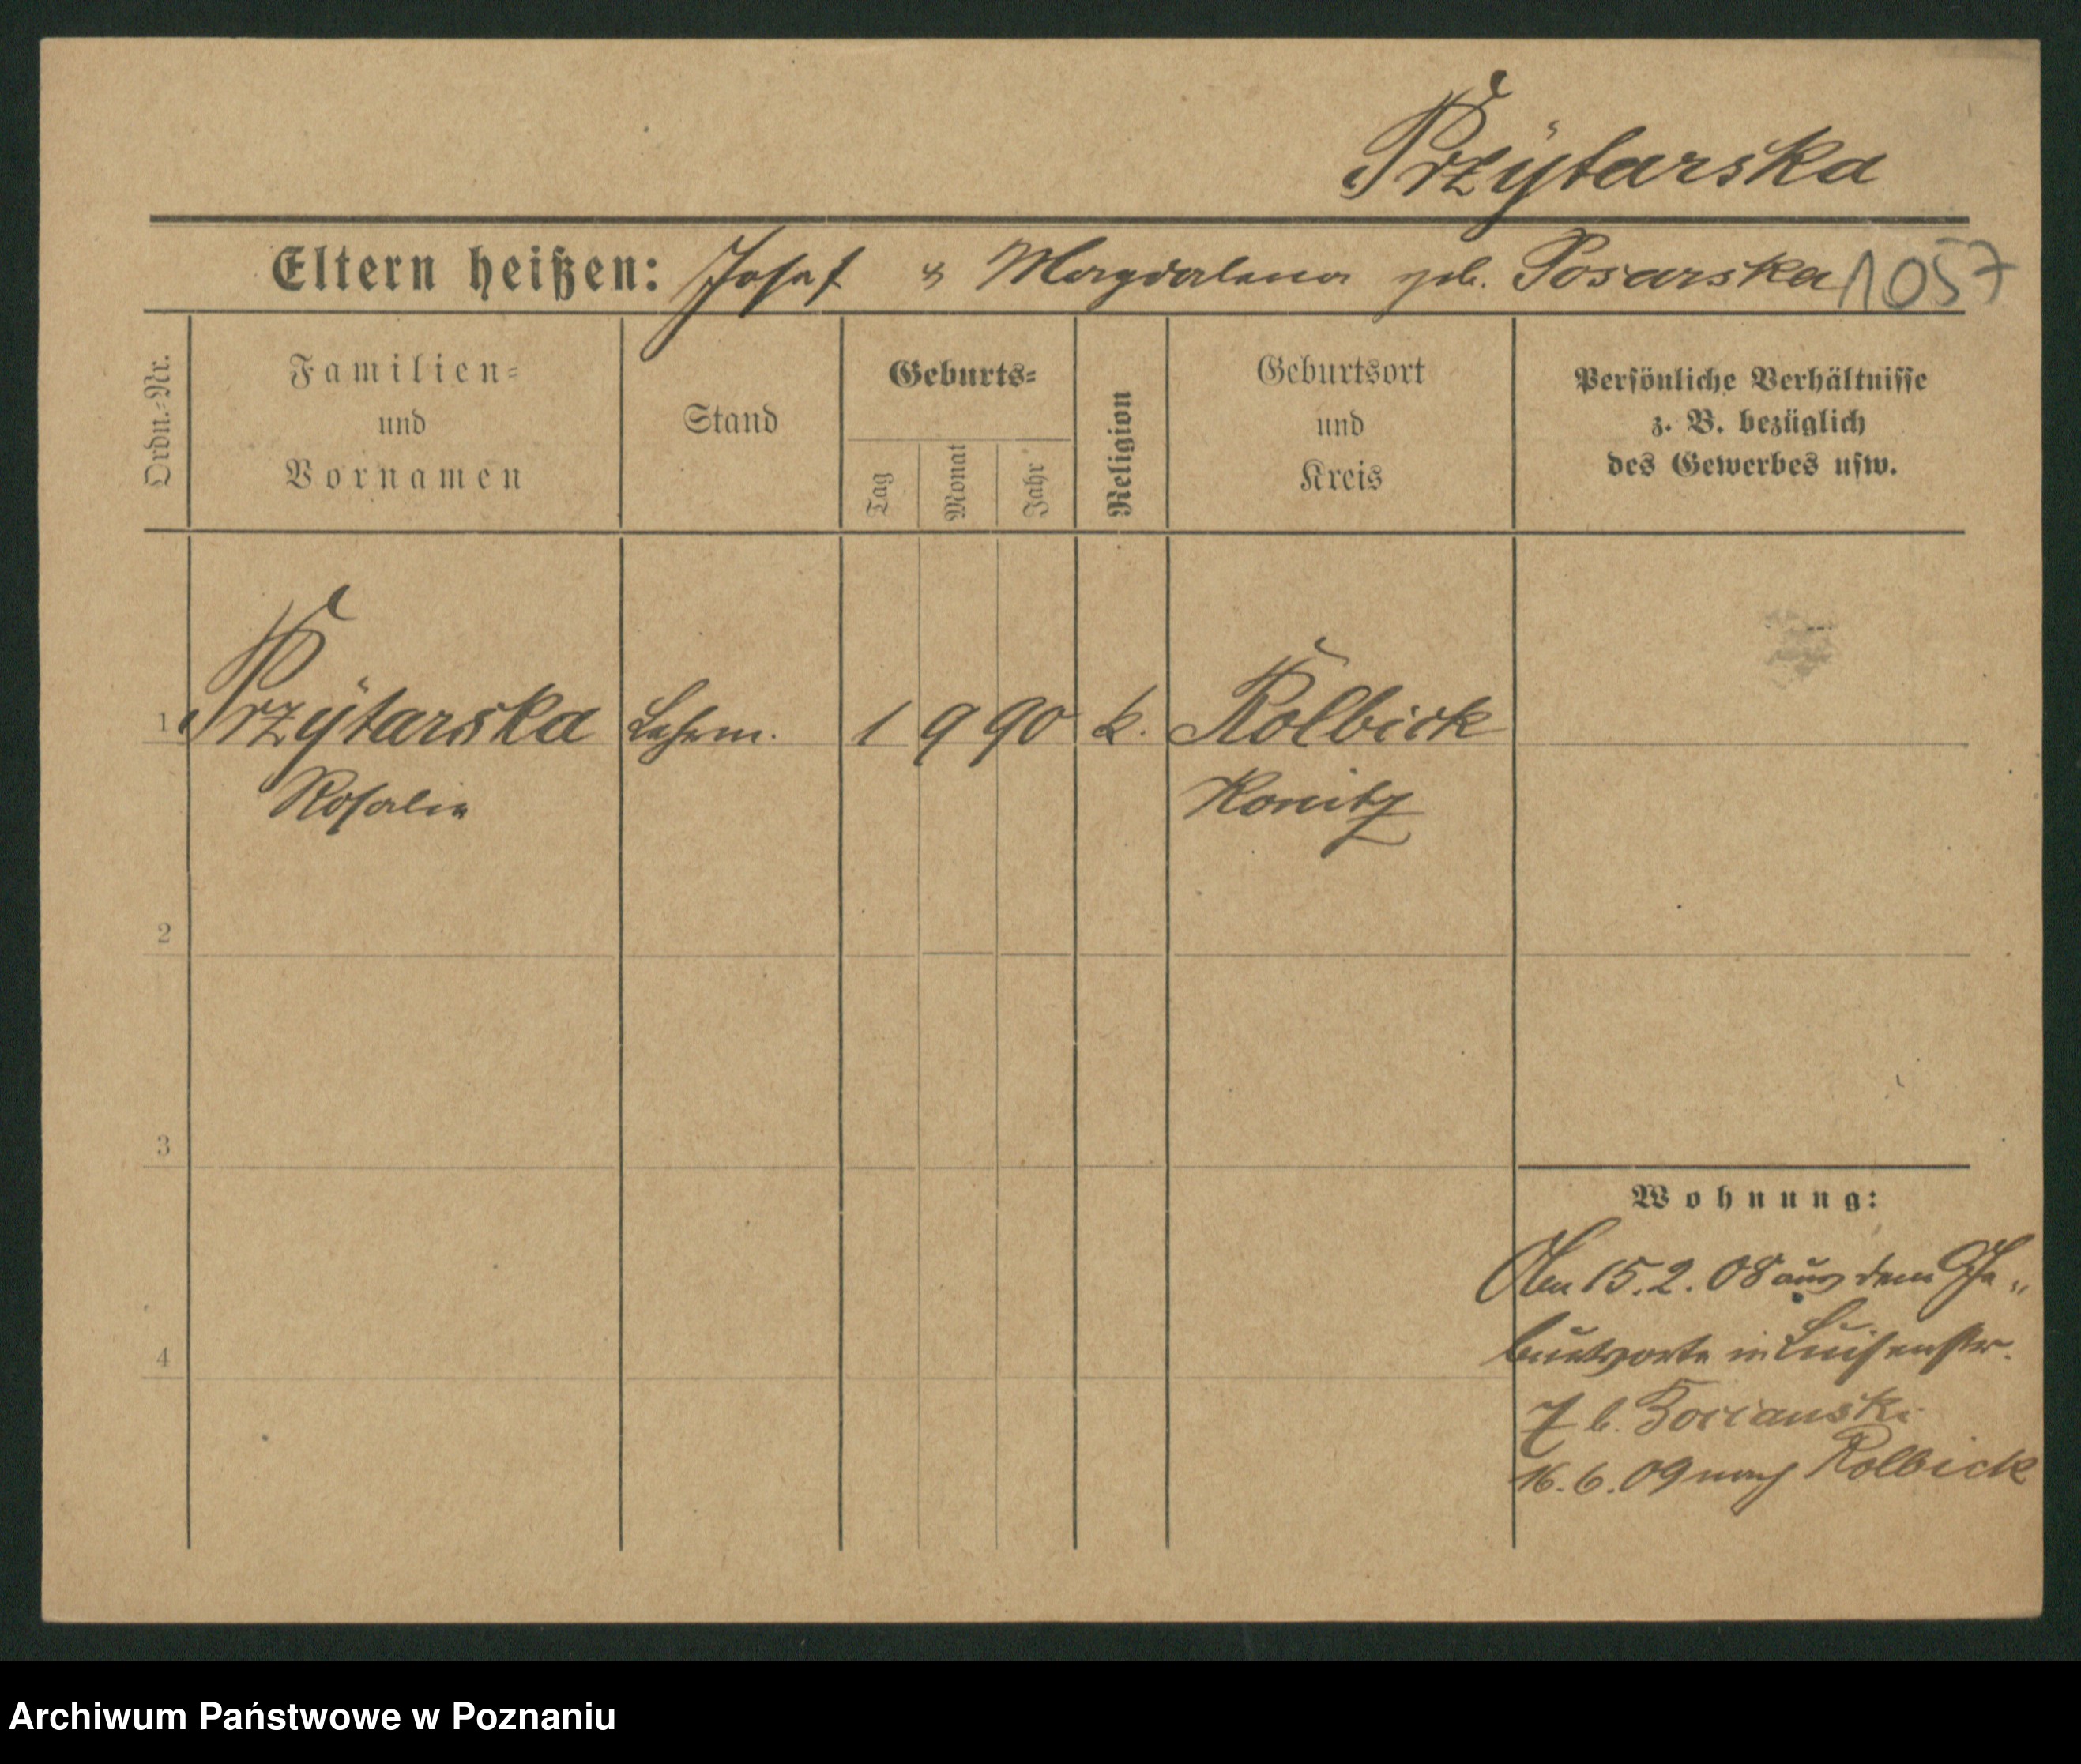 Przÿtarska
Eltern heißen: Josef & Magdalena geb. Posarska 1057
Ordn.-Nr.
Familien-
und
Vornamen
Stand
Geburts-
Tag
Monat
Jahr
Religion
Geburtsort
und
Kreis
Persönliche Verhältnisse
z. B. bezüglich
des Gewerbes usw.
1 Przÿtarska 1 9 90 k. Kolbick
Rosalia Konitz
2
3
4
Wohnung:
Am 15.2.08 aus dem Ge„
burtsorte in Luisenstr.
7 b.
16.6.09 nach Kolbick
Archiwum Państwowe w Poznaniu